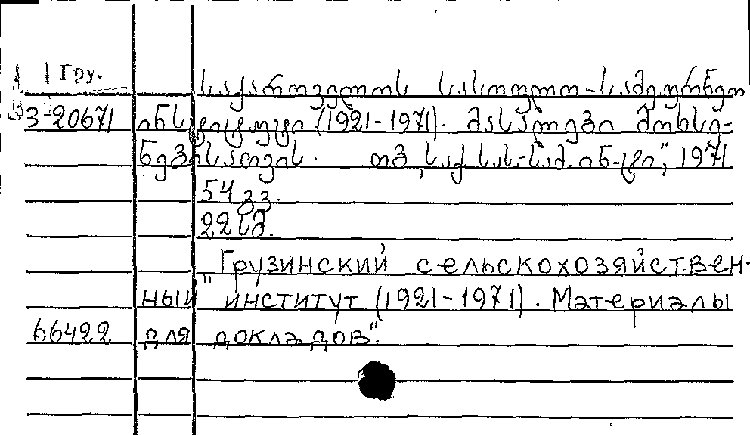 1 Гру.
საქართველოს სასოფლო-სამეურნეო
3-20671 ინსტიტუტი (1921-1971). მასალები მოხსე-
ნებისათვის. თბ., საქ. სას.-სამ. ინ-ტი, 1971
54 გვ.
22 სმ.
"Грузинский сельскохозяйствен-
ный институт (1921-1971). Материалы
66422 для докладов".